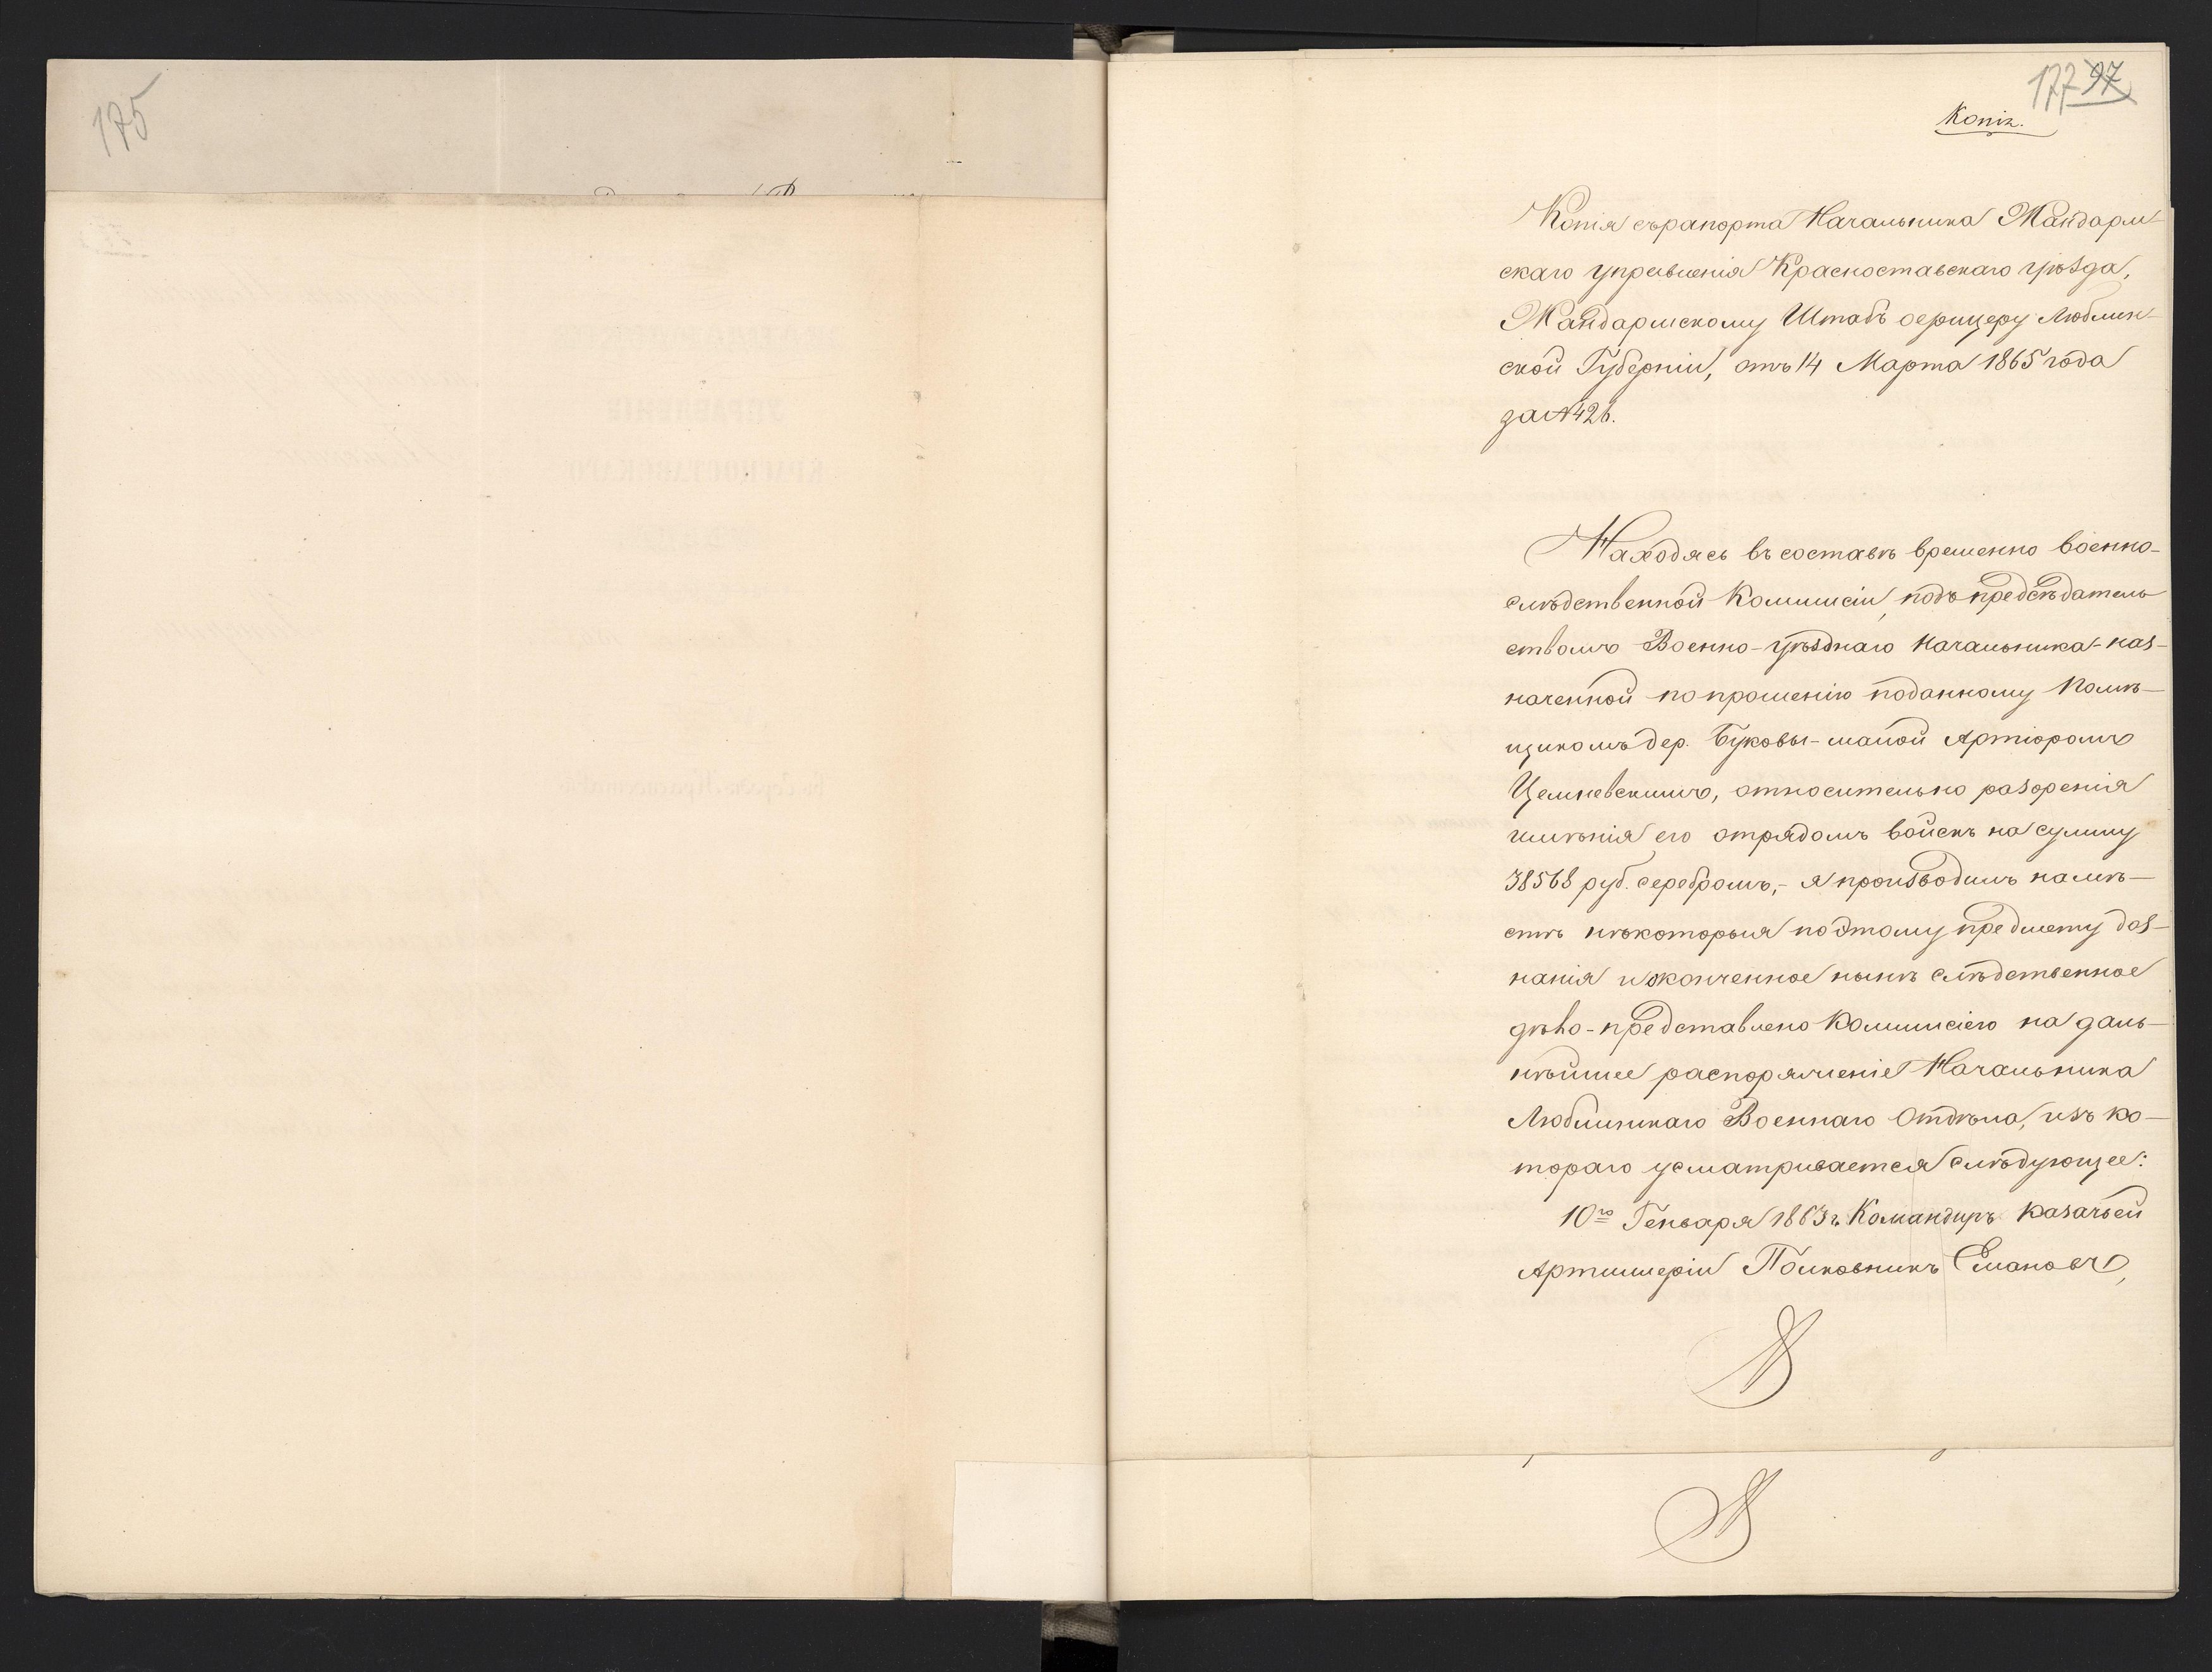 175
177 97
Копія.
Копія съ рапорта Начальника Жандарм-
скаго управленія Красноставскаго уѣзда,
Жандармскому Штабъ офицеру Люблин-
ской Губерніи, отъ 14 Марта 1865 года
за № 426.
Находясь въ составѣ временно военно-
слѣдственной Коммисіи, подъ предсѣдатель
ствомъ Военно-уѣзднаго Начальника - наз-
наченной по прошенію поданному Помѣ-
щикомъ дер. Буковы-малой Артюромъ
Цемневскимъ, относительно разоренія
имѣнія его отрядомъ войскъ на сумму
38568 руб. серебромъ, - я производилъ на мѣ-
стѣ нѣкоторыя по этому предмету доз-
нанія и оконченное нынѣ слѣдственное
дѣло - представлено Коммисіею на даль-
нѣйшее распоряженіе Начальника
Люблинскаго Военнаго Отдѣла, изъ ко-
тораго усматривается слѣдующее:
10го Генваря 1863 г. Командиръ казачьей
Артиллеріи Полковникъ Емановъ,